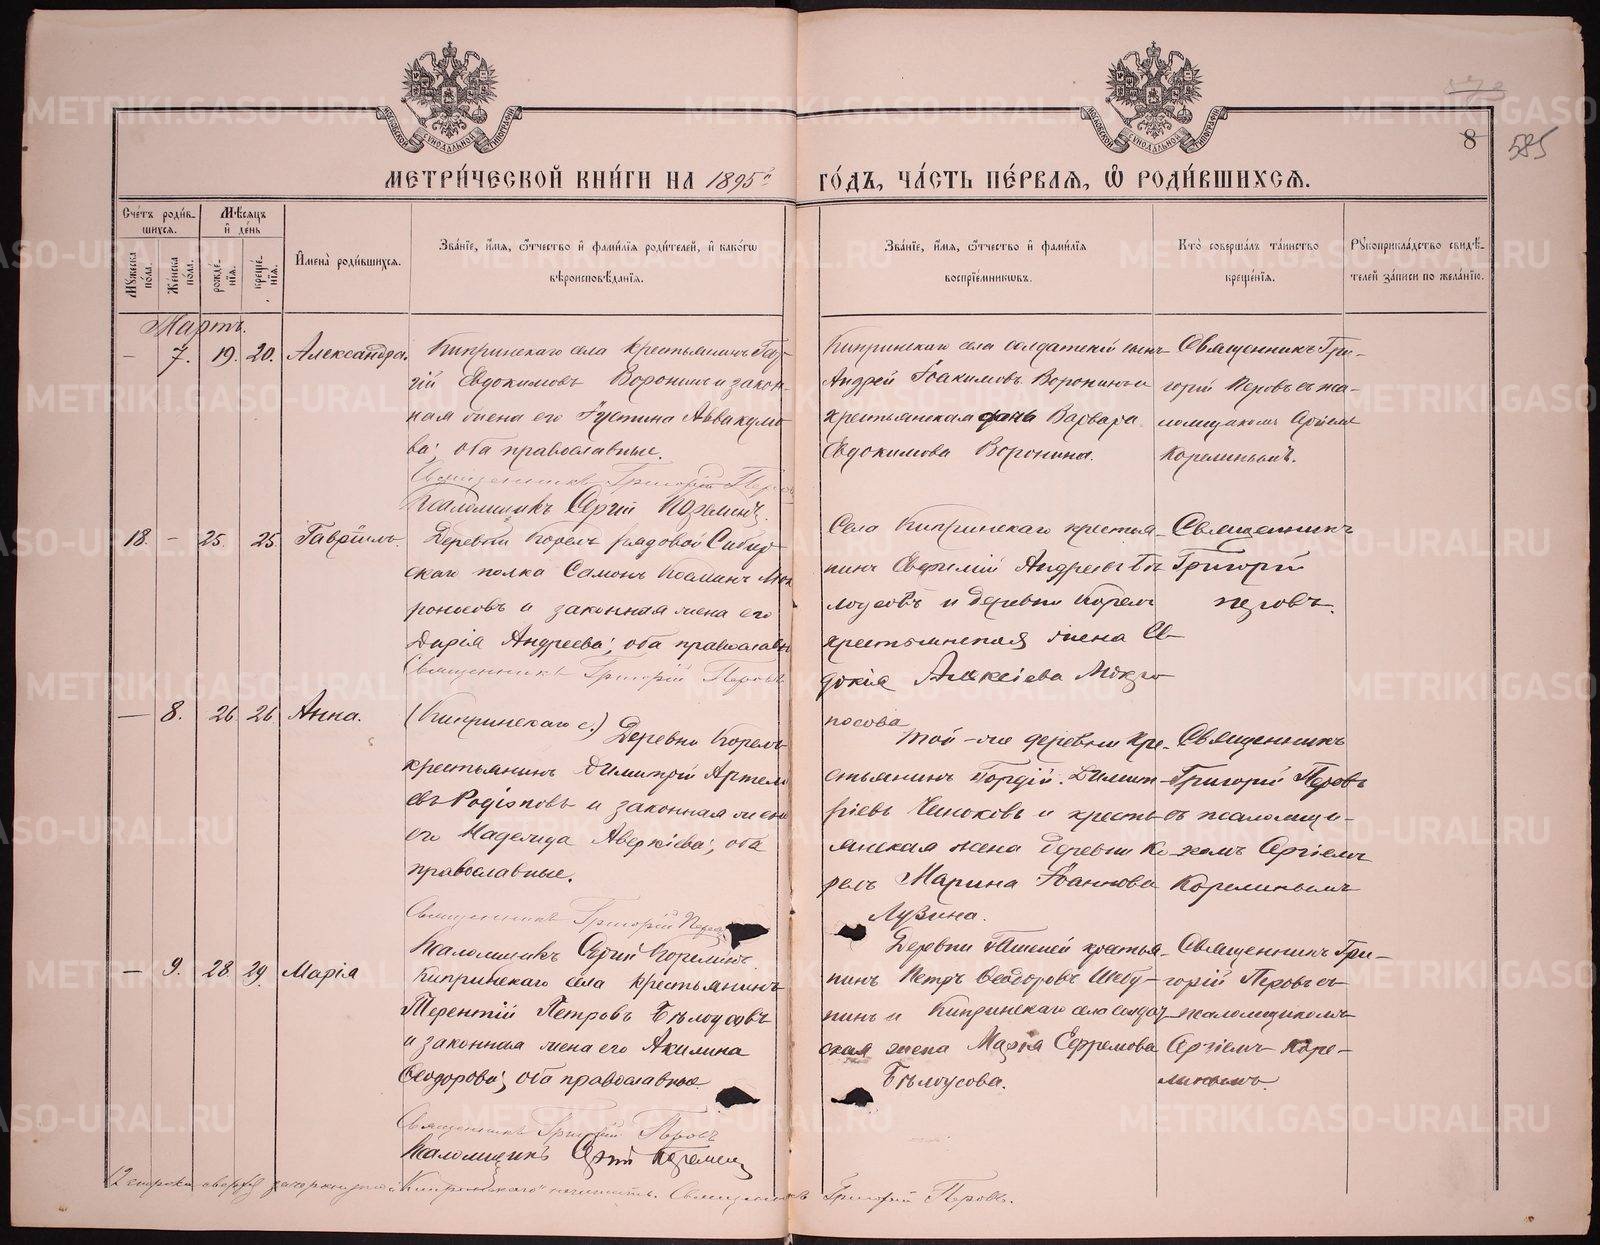 8
585
МЕТРИ́ЧЕСКОЙ КНИ́ГИ НА 1895й ГО́ДЪ, ЧА́СТЬ ПЕ́РВАЯ, Ѡ РОДИ́ВШИХСЯ.
Сче́тъ роди́в-
шихся.
Мꙋ́жеска по́ла.
Же́нска по́ла.
Мѣ́сяцъ и де́нь
рожде́-
нїя.
креще́-
нїя.
Имена̀ роди́вшихся.
Зва́нїе, и́мя, о́тчество и фами́лїя роди́телей, и како́гѡ
вѣроисповѣ́данїя.
Зва́нїе, и́мя, о́тчество и фами́лїя
воспрїе́мниковъ.
Кто̀ соверша́лъ та́инство
креще́нїя.
Рꙋкоприкла́дство свидѣ́-
телей за́писи по жела́нїю.
Мартъ.
— 7. 19. 20. Александра.
Кипринскаго села крестьянинъ
гій Евдокимовъ Воронинъ и закон-
ная жена его Іустина Аввакумо
ва; оба православные.
Священникъ Григорій Перовъ
Псаломщикъ Сергій
Кипринскаго села солдатскій сынъ
Андрей Іоакимовъ Воронинъ и
крестьянская дочь Варвара
Евдокимова Воронина.
Священникъ Гри-
горій Перовъ съ пса-
ломщикомъ Сергіемъ
Корелинымъ.
18. — 25. 25. Гавріилъ.
Деревни Корелъ рядовой Сибир
скаго полка Самонъ Косминъ Мок
роносовъ и законная жена его
Дарія Андреева; оба православн
Священникъ Григорій Перовъ
Села Кипринскаго крестья-
нинъ Евфимій Андреевъ Бѣ
лоусовъ и деревни Корелъ
крестьянская жена Ев-
докія Алексіева Мокро
носова
Священникъ
Григорій
Перовъ.
— 8. 26. 26. Анна.
(Кипринскаго с.) Деревни Корелъ
крестьянинъ Димитрій Артемі
евъ Родіоновъ и законная жена
его Надежда Аверкіева; оба
православные.
Священникъ Григорій Перовъ
Псаломщикъ Сергій Корелинъ
Той-же деревни кре-
стьянинъ Гордій Димит-
ріевъ Чесноковъ и кресть-
янская жена деревни Ко
релъ Марина Іоаннова
Лузина.
Священникъ
Григорій Перовъ
съ псаломщи-
комъ Сергіемъ
Корелинымъ
— 9. 28. 29. Марія
Кипринскаго села крестьянинъ
Терентій Петровъ Бѣлоусовъ
и законная жена его Акилина
Ѳеодорова; оба православные.
Священникъ Григорій Перовъ
Псаломщикъ Сергій Корелинъ
Деревни крестья-
нинъ Петръ Ѳеодоровъ
нинъ и Кипринскаго села солдат
ская жена Марія Ефремова
Бѣлоусова.
Священникъ Гри-
горій Перовъ съ
псаломщикомъ
Сергіемъ Коре-
линымъ.
12 строки сверху зачеркнутое „Кипринскаго" не читать. Священникъ Григорій Перовъ.
METRIKI.GASO-URAL.RU